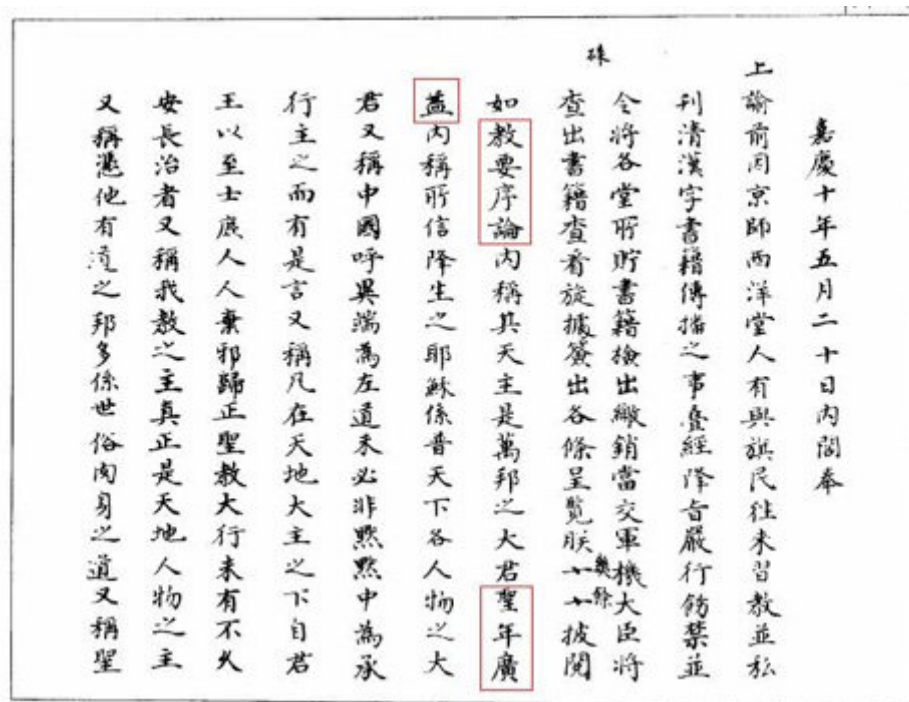 嘉慶十年五月二十日內閣奉
上諭前因京師西洋堂人有與旗民往來習教並私
刊清漢字書籍傳播之事疊經降旨嚴行飭禁並
令將各堂所貯書籍檢出繳銷當交軍機大臣將
硃
查出書籍查看旋據簽出各條呈覽朕幾餘披閱
如教要序論內稱其天主是萬邦之大君聖年廣
益內稱所信降生之耶穌係普天下各人物之大
君又稱中國呼異端為左道未必非默默中為承
行主之而有是言又稱凡在天地大主之下自君
王以至士庶人人棄邪歸正聖教大行未有不久
安長治者又稱我教之主真正是天地人物之主
又稱憑他有道之邦多係世俗肉身之道又稱聖